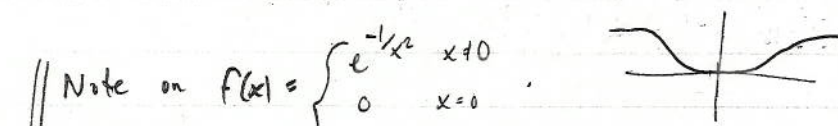 || Note on f(x) = { e^{-1/x²} x≠0
0 x=0 .